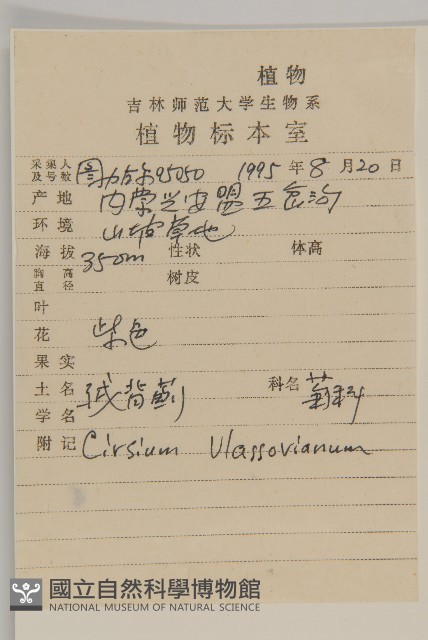 植物
吉林师范大学生物系
植物标本室
采集人及号数 图力古尔95050 1995 年 8 月 20 日
产地 内蒙兴安盟五岔沟
环境 山坡草地
海拔 350m 性状 体高
胸高直径 树皮
叶
花 紫色
果实
土名 绒背蓟 科名 菊科
学名
附记 Cirsium Vlassovianum
國立自然科學博物館
NATIONAL MUSEUM OF NATURAL SCIENCE